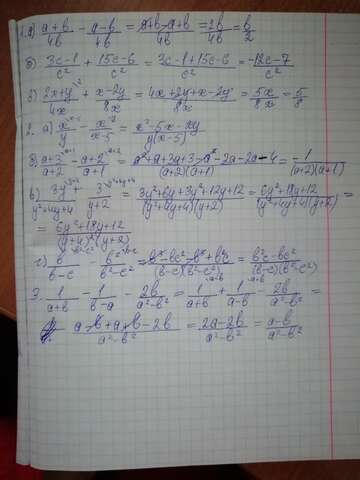 1. а) a+b/4b - a-b/4b = a+b-a+b/4b = 2b/4b = b/2
б) 3c-1/c² + 15c-6/c² = 3c-1+15c-6/c² = -12c-7/c²
в) 2x+y/4x + x-2y/8x = 4x+2y+x-2y/8x = 5x/8x = 5/8
2. а) x/y - x/x-5 = x²-5x-xy/y(x-5)
б. a+3/a+2 - a+2/a+1 = a²+a+3a+3-a²-2a-2a-4/(a+2)(a+1) = -1/(a+2)(a+1)
в) 3y/y²+4y+4 + 3/y+2 = 3y²+6y+3y²+12y+12/(y²+4y+4)(y+2) = 6y²+18y+12/(y²+4y+4)(y+2) =
= 6y²+18y+12/(y+4)²(y+2)
г) b/b-c - b²/b²-c² = b³-bc²-b³+b²c/(b-c)(b²-c²) = b²c-bc²/(b-c)(b²-c²)
3. 1/a+b - 1/b-a - 2b/a²-b² = 1/a+b + 1/a-b - 2b/a²-b² =
a-b+a+b-2b/a²-b² = 2a-2b/a²-b² = a-b/a²-b²